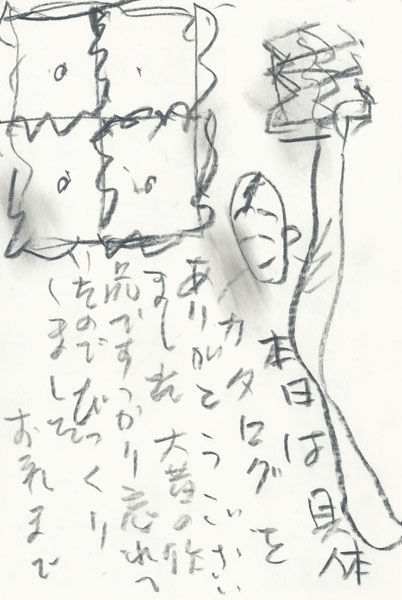 本日は具体
カタログを
ありがとうござい
ました 大昔の作
品ですっかり忘れて
いたので びっくり
しました
お礼まで